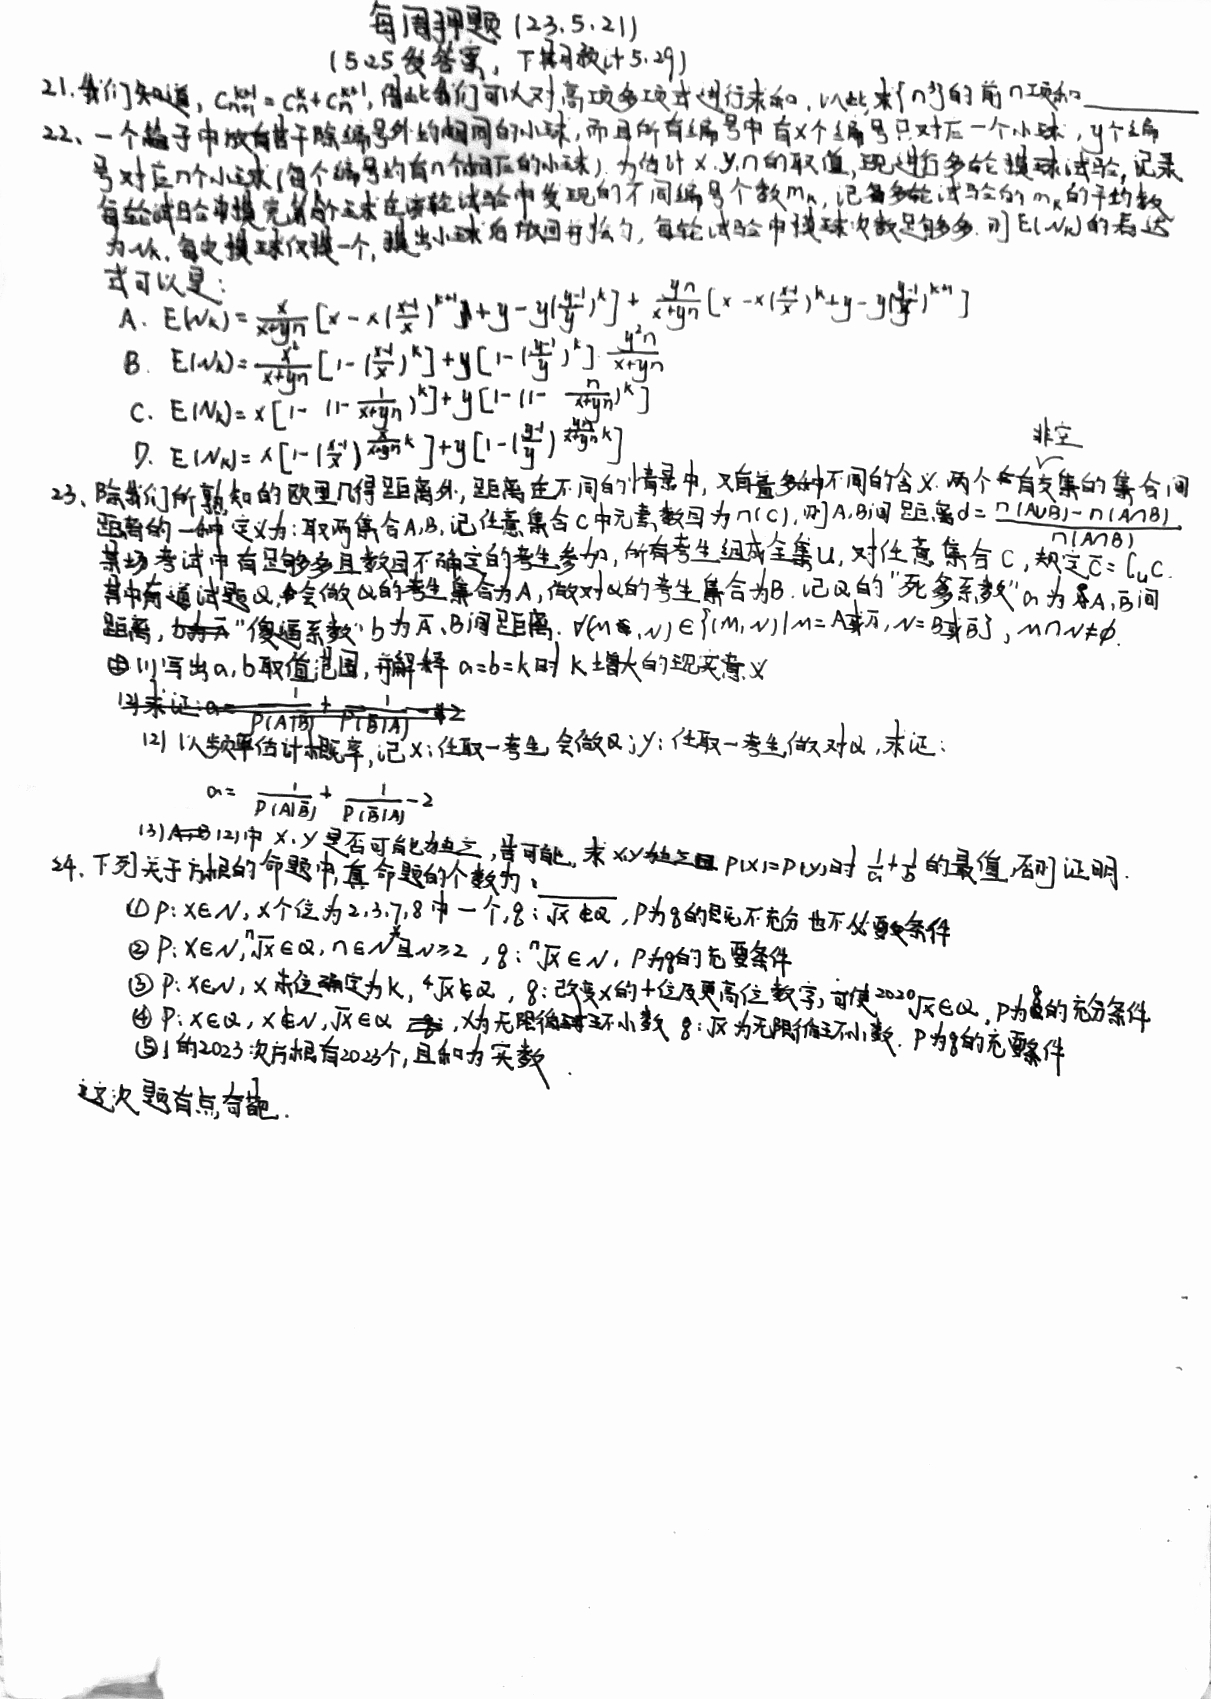 每周押题(23.5.21)
(5.25发答案,下期预计5.29)
21.我们知道, C_{n+1}^{k+1} = C_n^k + C_n^{k+1}, 借此我们可以对高项多项式进行求和, 以此求{n³}的前n项和______
22、一个箱子中放有若干除编号外均相同的小球,而且所有编号中有x个编号只对应一个小球, y个编
号对应n个小球(每个编号均有n个相应的小球). 为估计x.y.n的取值,现进行多轮摸球试验,记录
每轮试验中摸完第k个球在该轮试验中发现的不同编号个数m_k, 记多轮试验的m_k的平均数
为N_k, 每次摸球仅摸一个,摸出小球后放回并摇匀, 每轮试验中摸球次数足够多. 则E(N_k)的表达
式可以是:
A. E(N_k)= x/(x+yn) [x - x((x-1)/x)^{k+1} + y - y((y-1)/y)^k] + yn/(x+yn) [x - x((x-1)/x)^k + y - y((y-1)/y)^{k+1}]
B. E(N_k)= x²/(x+yn) [1-((x-1)/x)^k] + y[1-((y-1)/y)^k]· y²n/(x+yn)
C. E(N_k)= x[1-(1- 1/(x+yn))^k] + y[1-(1- n/(x+yn))^k]
D. E(N_k)= x[1-((x-1)/x)^{x/(x+yn) k}] + y[1-((y-1)/y)^{yn/(x+yn) k}]
非空
23、除我们所熟知的欧里几得距离外, 距离在不同的情景中, 又有着多种不同的含义. 两个有交集的集合间
距离的一种定义为: 取两集合A,B, 记任意集合C中元素数目为n(C), 则A,B间距离d= (n(A∪B)-n(A∩B))/n(A∩B)
某场考试中有足够多且数目不确定的考生参加, 所有考生组成全集U, 对任意集合C, 规定C̄=∁_uC.
其中有道试题Q, 会做Q的考生集合为A, 做对Q的考生集合为B. 记Q的"死多系数"a为A,B̄间
距离, "傻逼系数"b为Ā、B间距离. ∀(M,N)∈{(M,N)|M=A或Ā, N=B或B̄}, M∩N≠φ.
(1)写出a,b取值范围, 并解释a=b=k时k增大的现实意义
(2)求证: a= 1/P(A|B̄) + 1/P(B̄|A) -2
(2)以频率估计概率,记X:任取一考生会做Q;y:任取一考生做对Q,求证:
a= 1/P(A|B̄) + 1/P(B̄|A) -2
(3)(2)中X、y是否可能独立, 若可能, 求X,y独立且P(X)=P(y)时 1/a+1/b 的最值,否则证明.
24、下列关于方根的命题中,真命题的个数为:
①P: x∈N, x个位为2,3,7,8中一个, q: √x∉Q, P为q的既不充分也不必要条件
②P: x∈N, ⁿ√x∈Q, n∈N*且n≥2, q: ⁿ√x∈N, P为q的充要条件
③P: x∈N, x末位确定为k, ⁴√x∉Q, q: 改变x的十位及更高位数字,可使²⁰²⁰√x∈Q, P为q的充分条件
④P: x∈Q, x∉N, √x∈Q, x为无限循环小数 q: √x为无限循环小数. P为q的充要条件
⑤1的2023次方根有2023个,且和为实数.
这次题有点奇葩.